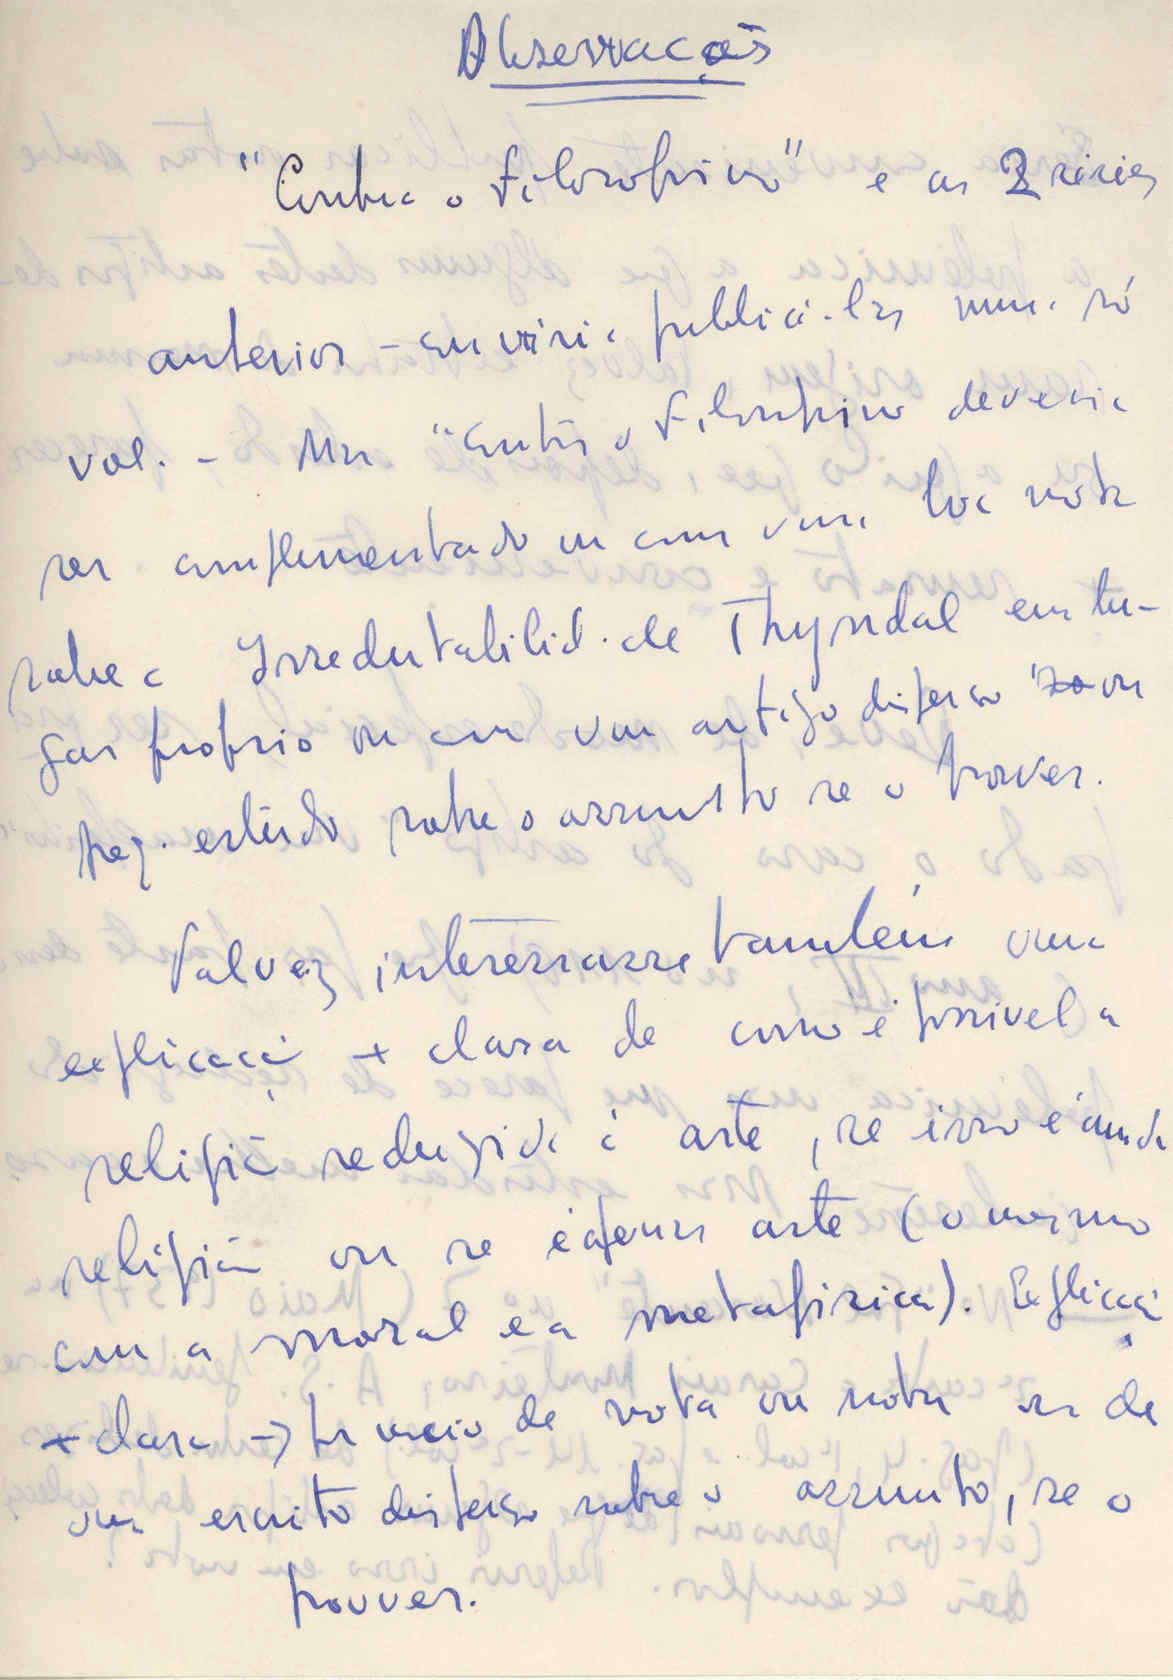 Observações
"Contra o Filosofismo" e as 2 séries
anteriores – conviria publicá-las num só
vol. – Mas "Contra o Filosofismo deveria
ser complementado ou com uma boa nota
sobre a Irredutabilid. de Thyndal em lu-
gar próprio ou com um artigo disperso ou
peq. estudo sobre o assunto se o houver.
Talvez interessasse também uma
explicação + clara de como é possível a
religião reduzida à arte, se isso é ainda
religião ou se é apenas arte (o mesmo
com a moral e a metafísica). Explicação
+ clara → por meio de nota ou notas ou de
um escrito disperso sobre o assunto, se o
houver.